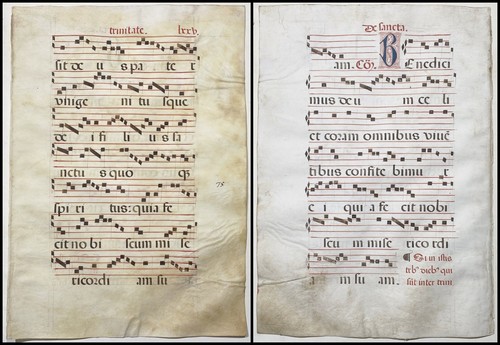 trinitate. lxxv.
sit de u s pa te r
unige ni tu sque
de i fi li us sa
nctu s quo q3
spi ri tus: quia fe
cit no bi scum mi se
ricordi am su
78
De sancta.
am. Cõ. B Enedici
mus deu m ce li
et coram omnibus vivẽ
tibus confite bimu r
e i qui a fe cit nobi
scu m mise rico rdi
a m su am.
Si in istis
trib' dieb' qui
sũt inter trini